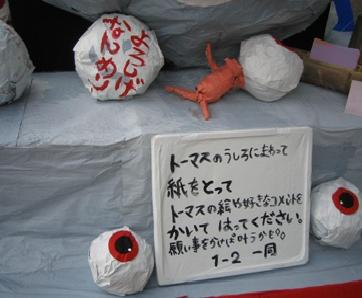 よろしげ
なんめい
トーマスのうしろにまわって
紙をとって
トーマスの絵や好きなコメントを
かいて はってください。
願い事をかけば叶うかも。
1-2 一同